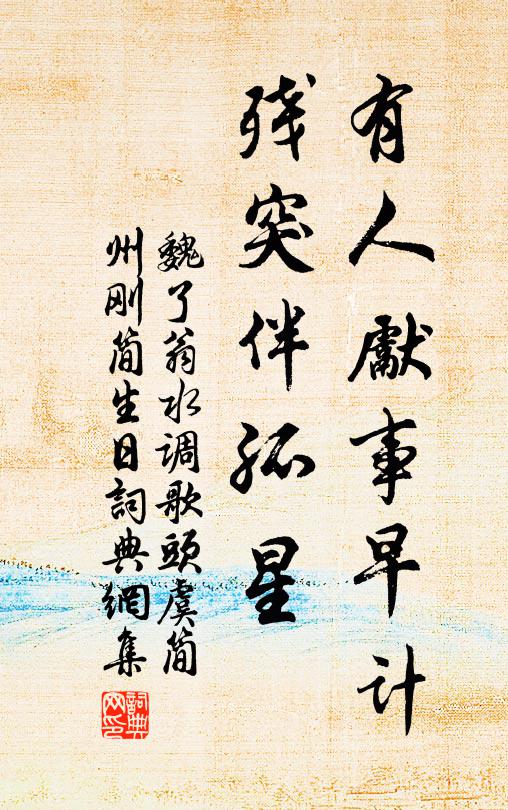 有人獻事早计
残突伴孤星
魏了翁水调歌頭虞简
州刚简生日詞典網集
詞典网印